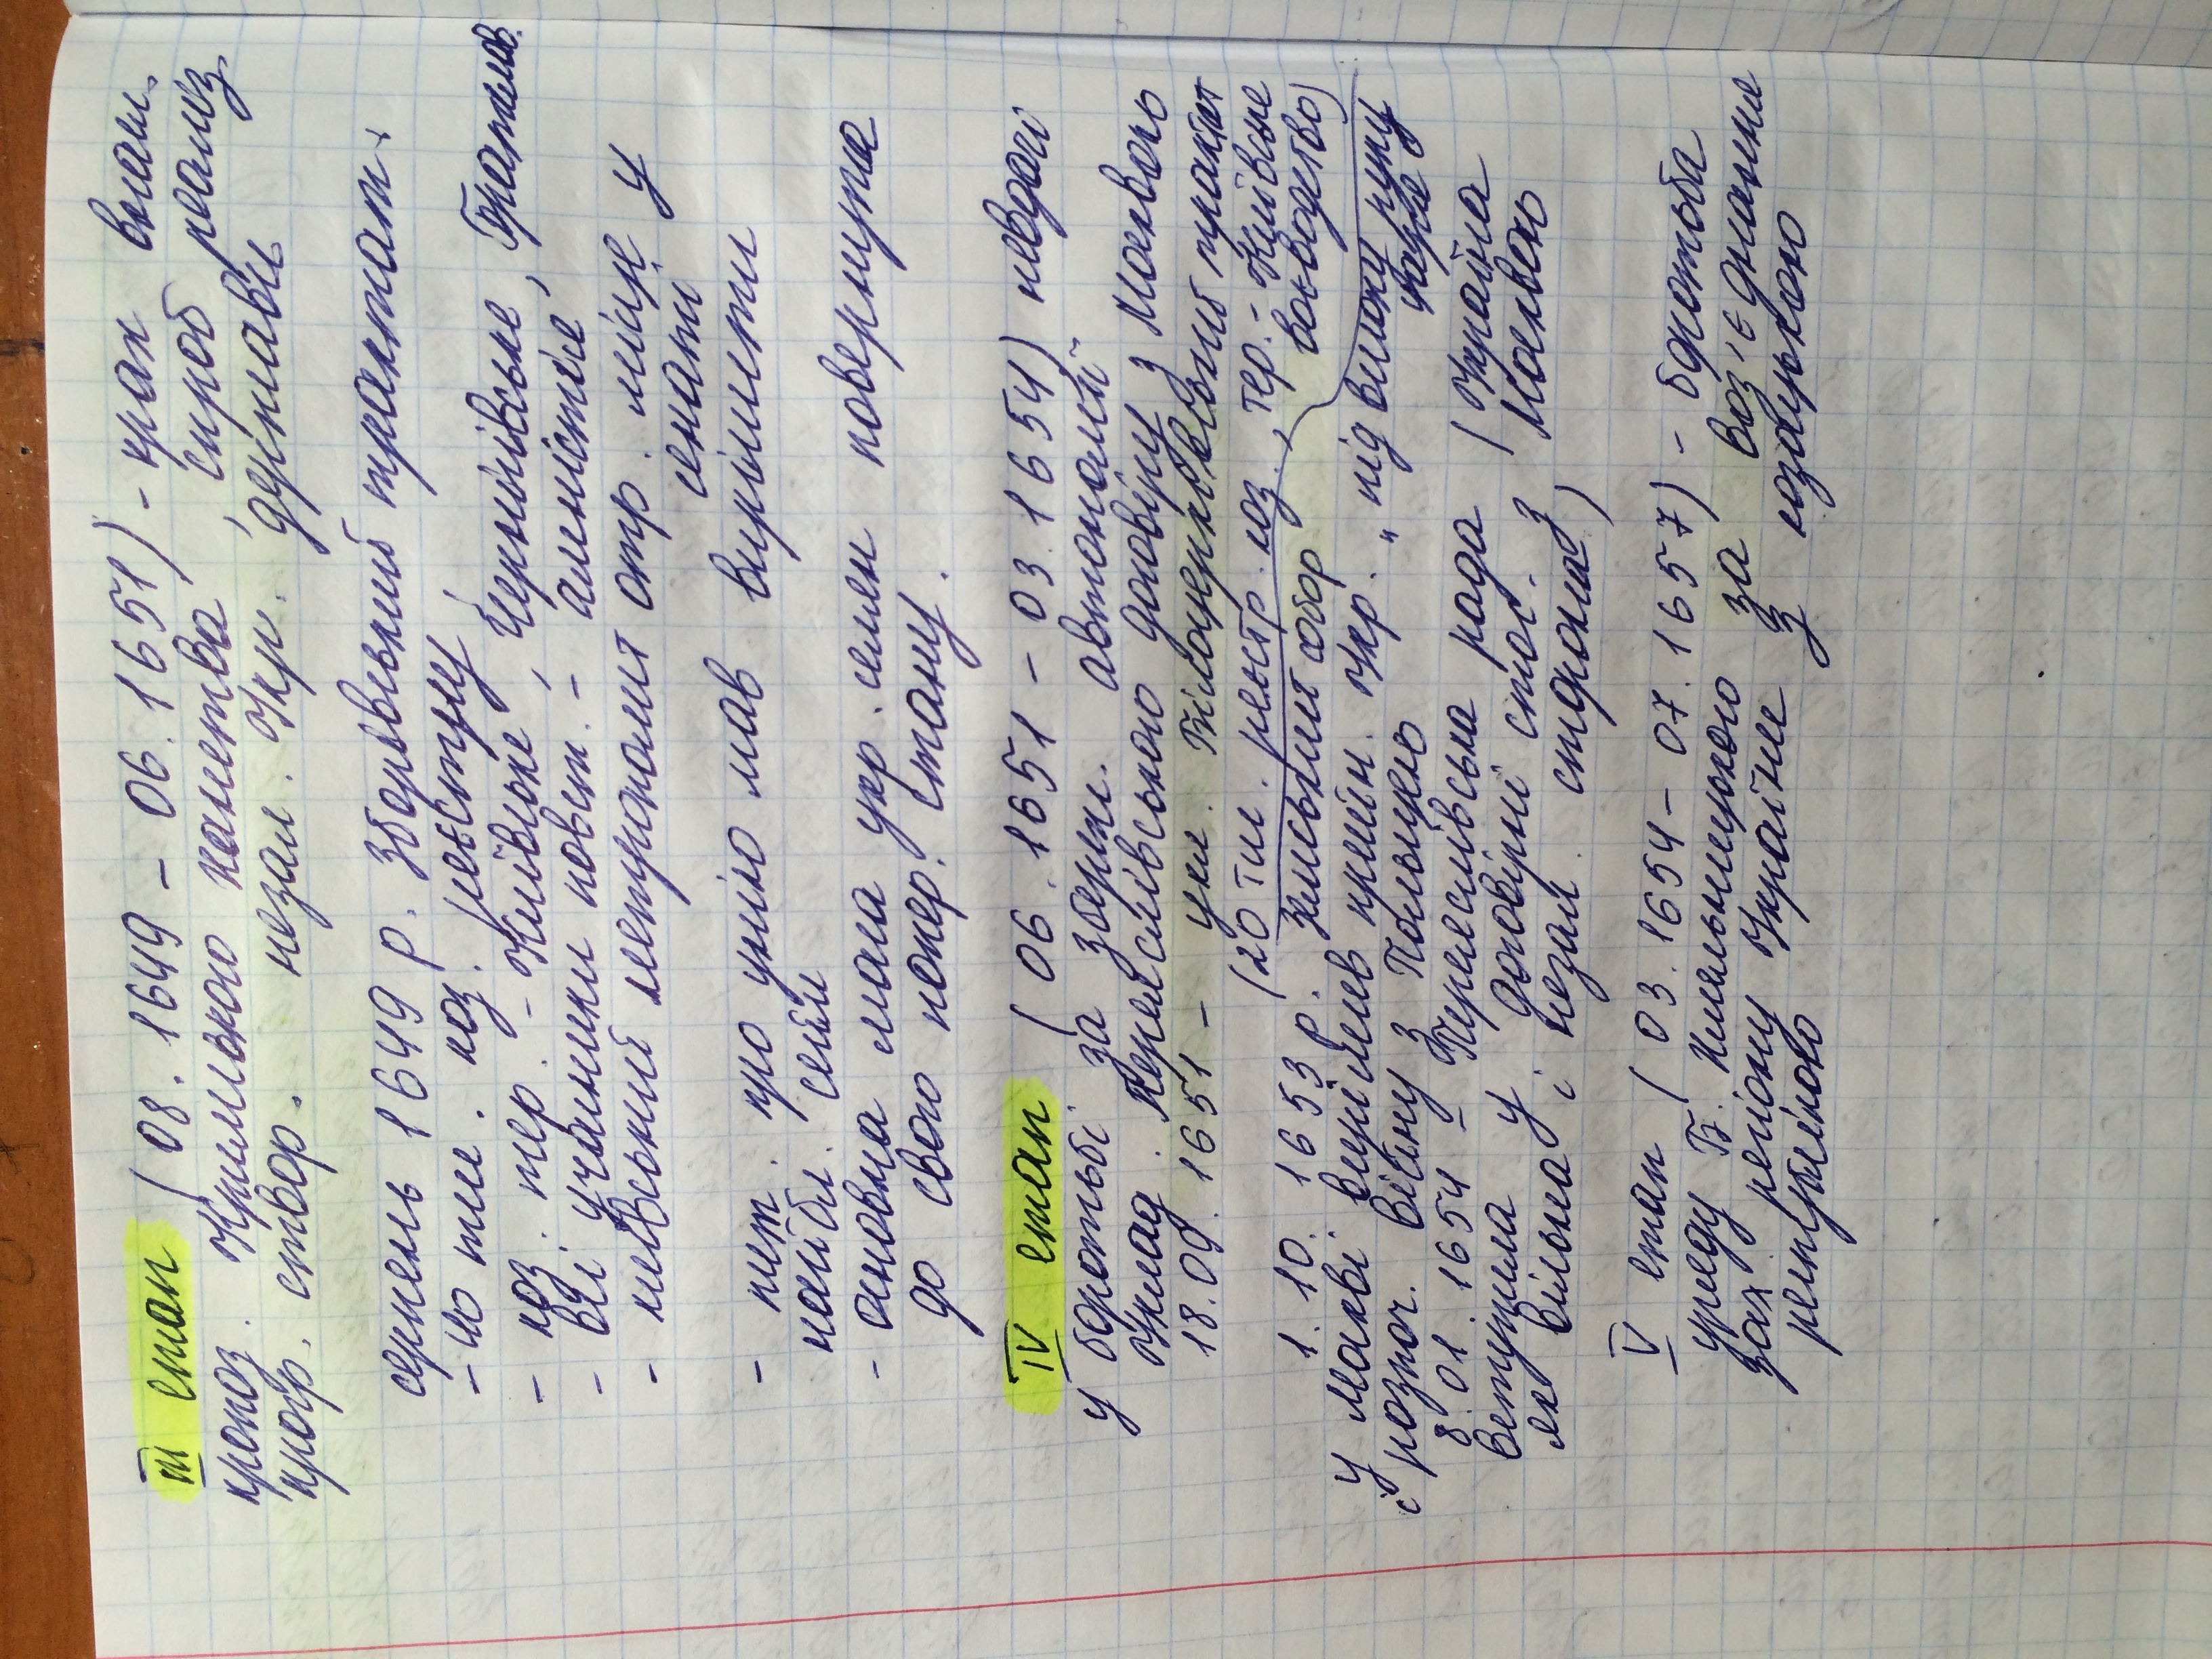 III етап (08.1649 – 06.1651) - крах
пропоз. Кримського ханства, спроб реаліз.
прогр. створ. незал. Укр. держави
серпень 1649 р. Зборівський трактат.
- 40 тис. коз. реєстру,
- коз. тер. - Київське, Чернігівське, Брацлав.
- всі учасники повст. - амністія
- київський метрополит отр. місце у
сенаті
- пит. про унію мав вирішити
найбл. сейм
- основна маса укр. селян повернута
до свого попер. стану.
IV етап (06.1651 – 03.1654) невдачі
у боротьбі за збереж. автономії
Уклад. Переяслівського договіру з Москвою
18.09.1651 – укл. Білоцерківський трактат
(20 тис. реєстр. коз., тер. - Київське
воєводство)
1.10.1653 р. Земський собор
у Москві вирішив прийн. Укр. „під високу руку
царя
і розпоч. війну з Польщею
8.01.1654 – Переяслівська рада (Україна
вступила у договірні стос. з Москвою
як вільна і незал. сторона)
V етап (03.1654 – 07.1657) - боротьба
уряду Б. Хмельницького за воз'єднання
зах. регіону України з козацькою
республікою